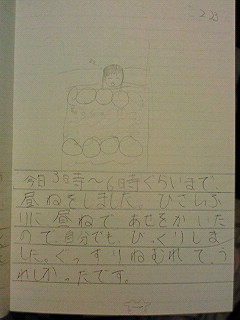 今日3時～6時ぐらいまで
昼ねをしました。ひさしぶ
りに昼ねであせをかいた
ので、自分でも、びっくりしま
した。ぐっすりねむれて、う
れしかったです。